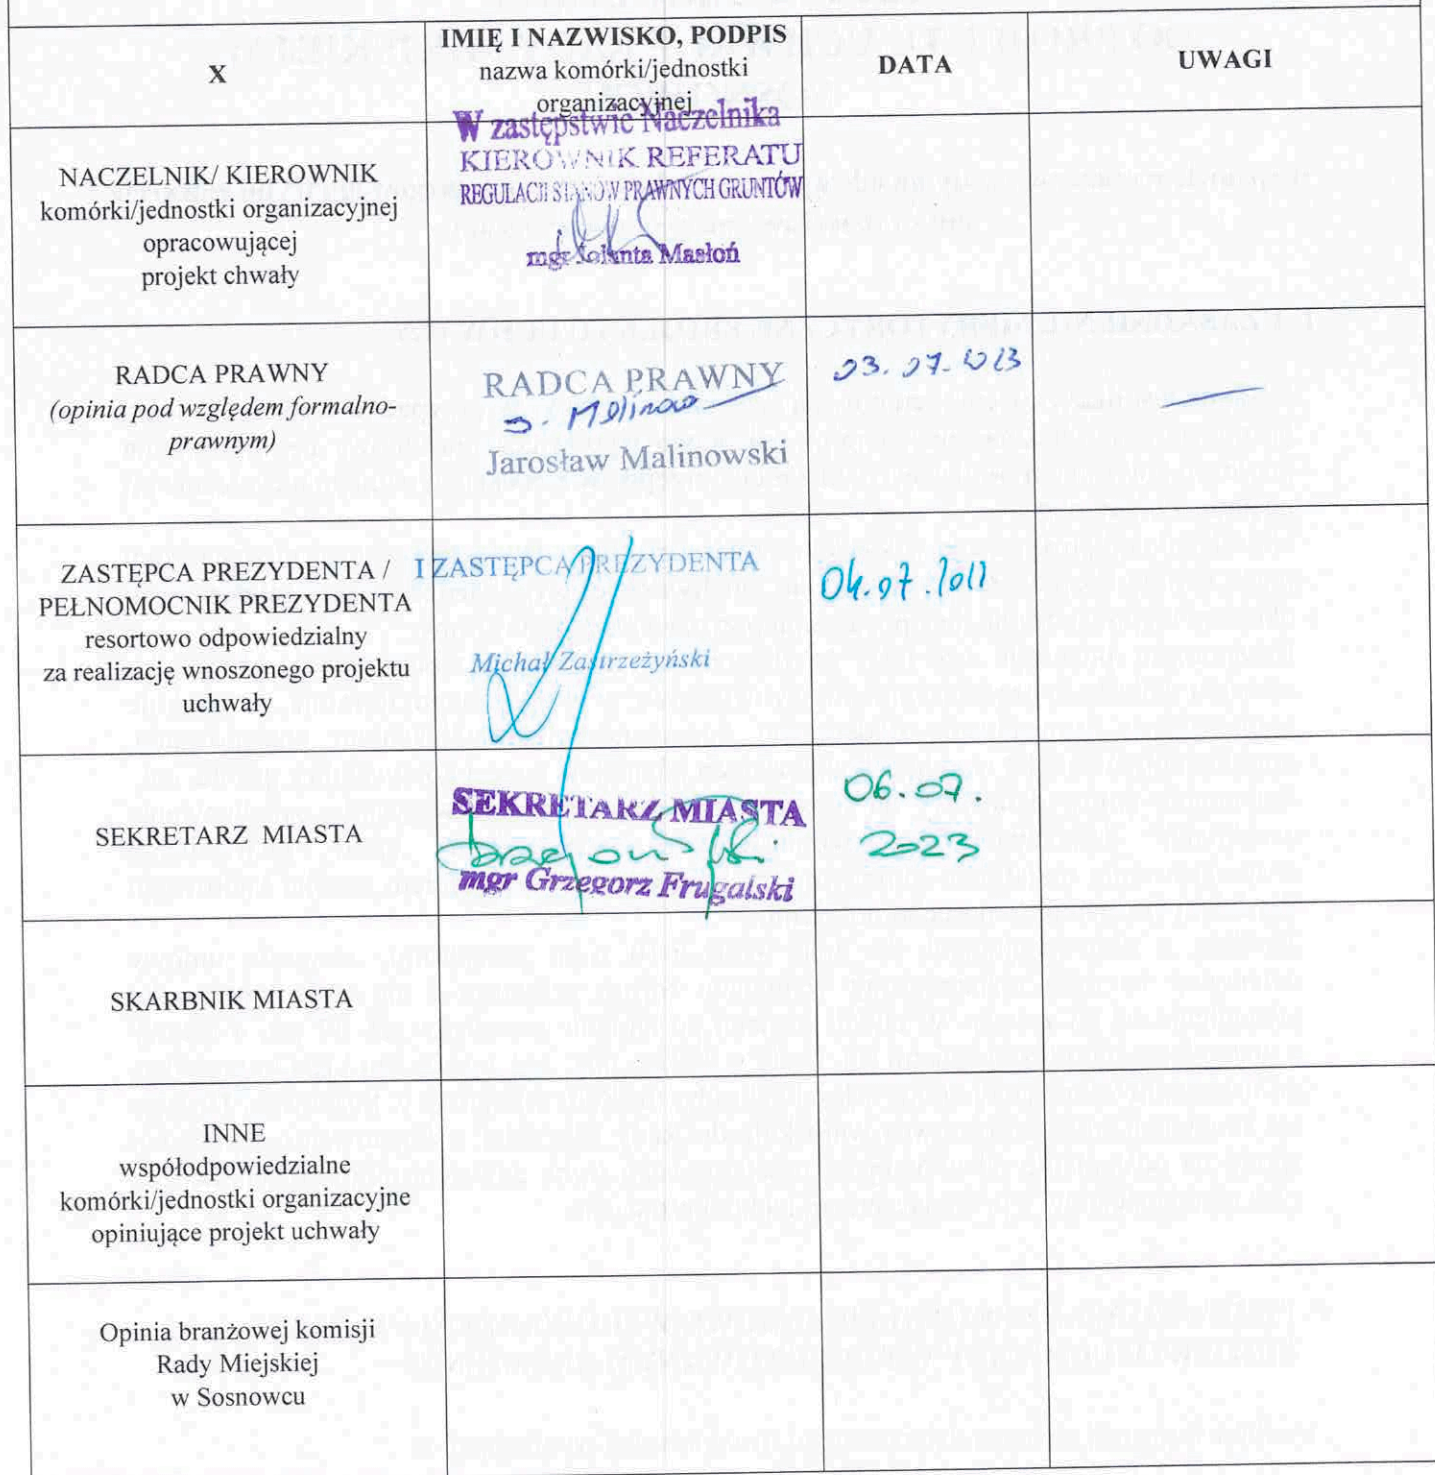 X
IMIĘ I NAZWISKO, PODPIS
nazwa komórki/jednostki
organizacyjnej
DATA
UWAGI
NACZELNIK/ KIEROWNIK
komórki/jednostki organizacyjnej
opracowującej
projekt chwały
W zastępstwie Naczelnika
KIEROWNIK REFERATU
REGULACJI STANÓW PRAWNYCH GRUNTÓW
mgr Jolanta Masłoń
RADCA PRAWNY
(opinia pod względem formalno-
prawnym)
RADCA PRAWNY
Jarosław Malinowski
03.07.2023
ZASTĘPCA PREZYDENTA /
PEŁNOMOCNIK PREZYDENTA
resortowo odpowiedzialny
za realizację wnoszonego projektu
uchwały
I ZASTĘPCA PREZYDENTA
Michał Zastrzeżyński
04.07.
SEKRETARZ MIASTA
SEKRETARZ MIASTA
mgr Grzegorz Frugalski
06.07.
2023
SKARBNIK MIASTA
INNE
współodpowiedzialne
komórki/jednostki organizacyjne
opiniujące projekt uchwały
Opinia branżowej komisji
Rady Miejskiej
w Sosnowcu